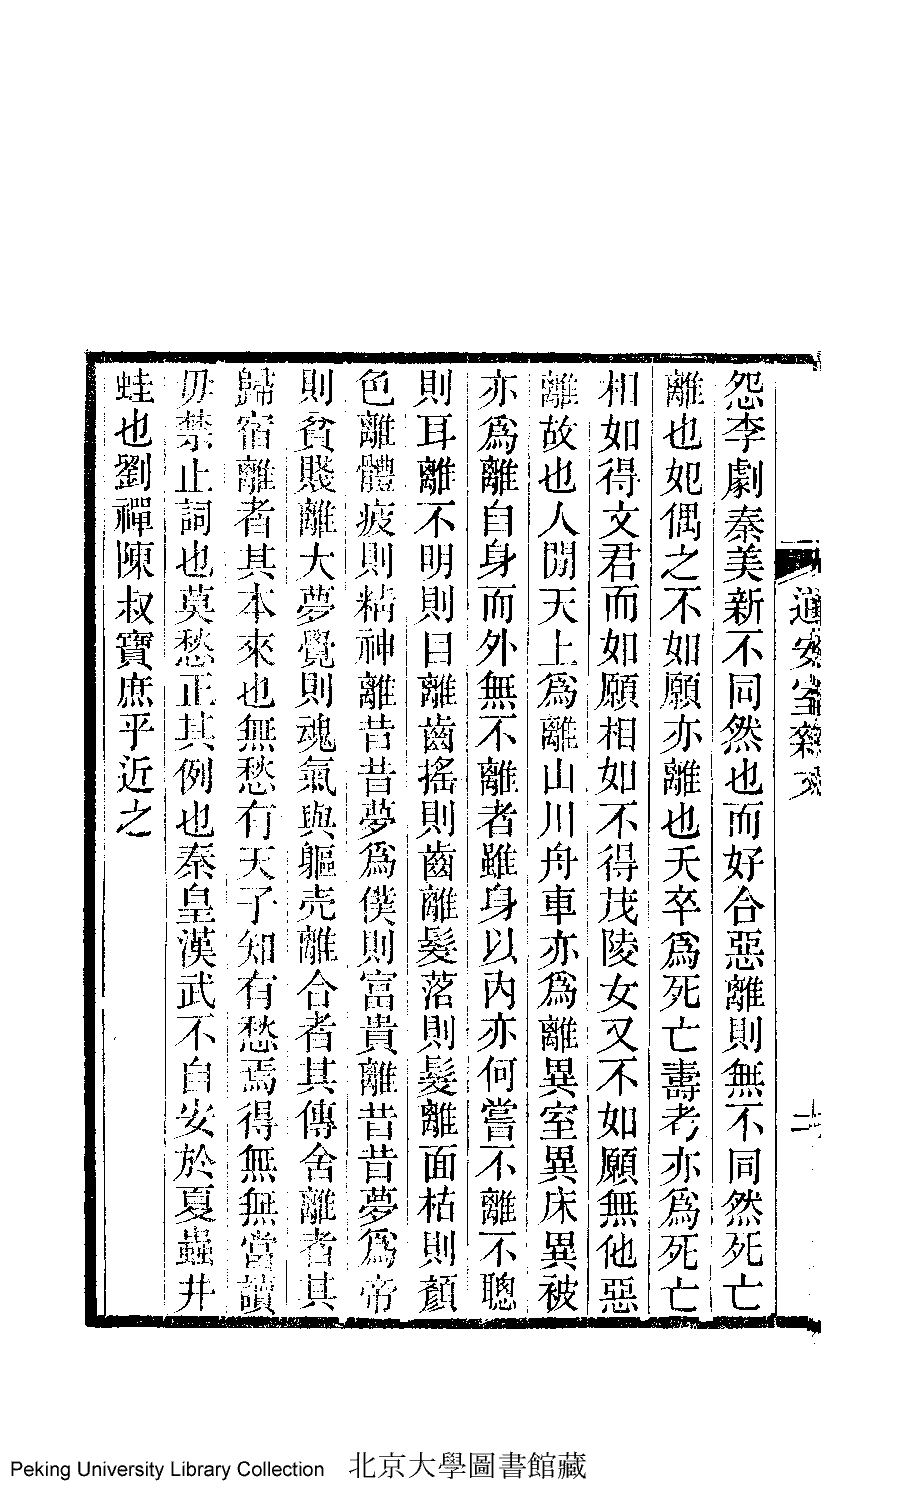 怨李劇秦美新不同然也而好合惡離則無不同然死亡
離也妃偶之不如願亦離也夭卒爲死亡壽考亦爲死亡
相如得文君而如願相如不得茂陵女又不如願無他惡
離故也人閒天上爲離山川舟車亦爲離異室異床異被
亦爲離自身而外無不離者雖身以內亦何嘗不離不聰
則耳離不明則目離齒搖則齒離髮落則髮離面枯則顏
色離體疲則精神離昔昔夢爲僕則富貴離昔昔夢爲帝
則貧賤離大夢覺則魂氣與軀壳離合者其傳舍離者其
歸宿離者其本來也無愁有天子知有愁焉得無無當讀
毋禁止詞也莫愁正其例也秦皇漢武不自安於夏蟲井
蛙也劉禪陳叔寶庶乎近之
安室雜文
二
Peking University Library Collection 北京大學圖書館藏